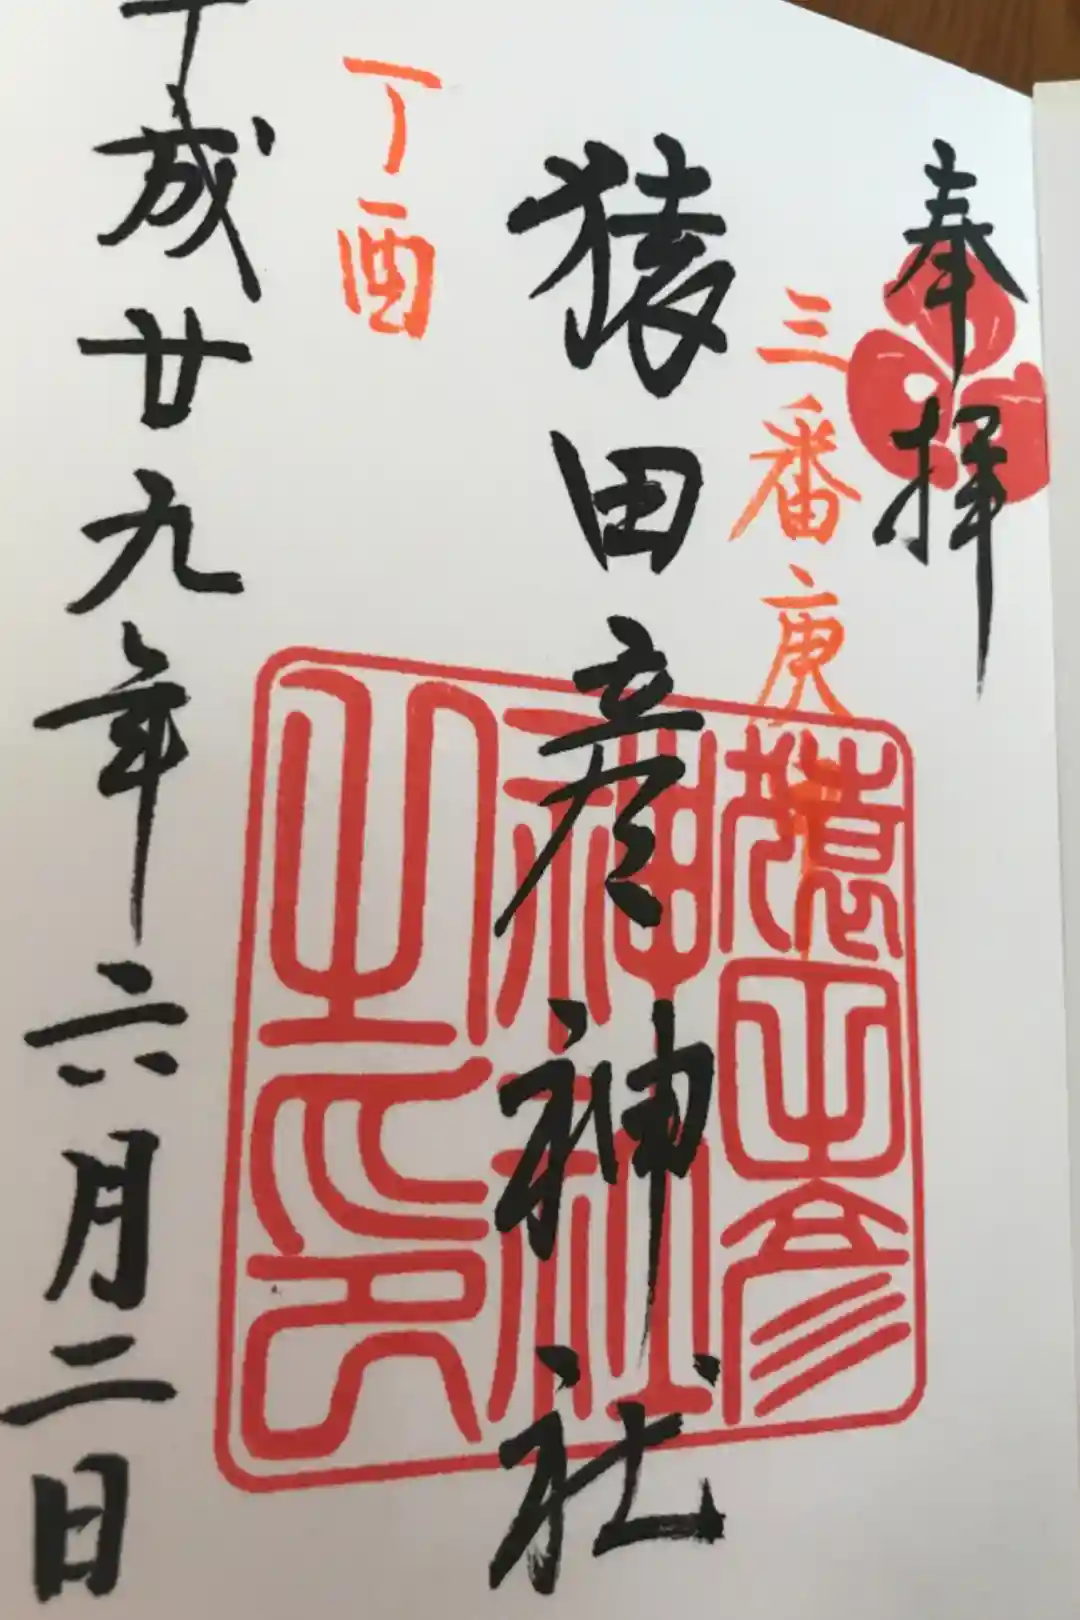 奉拝
三番庚申
猿田彦神社
猿田彦
神社
之印
丁酉
平成廿九年六月二日